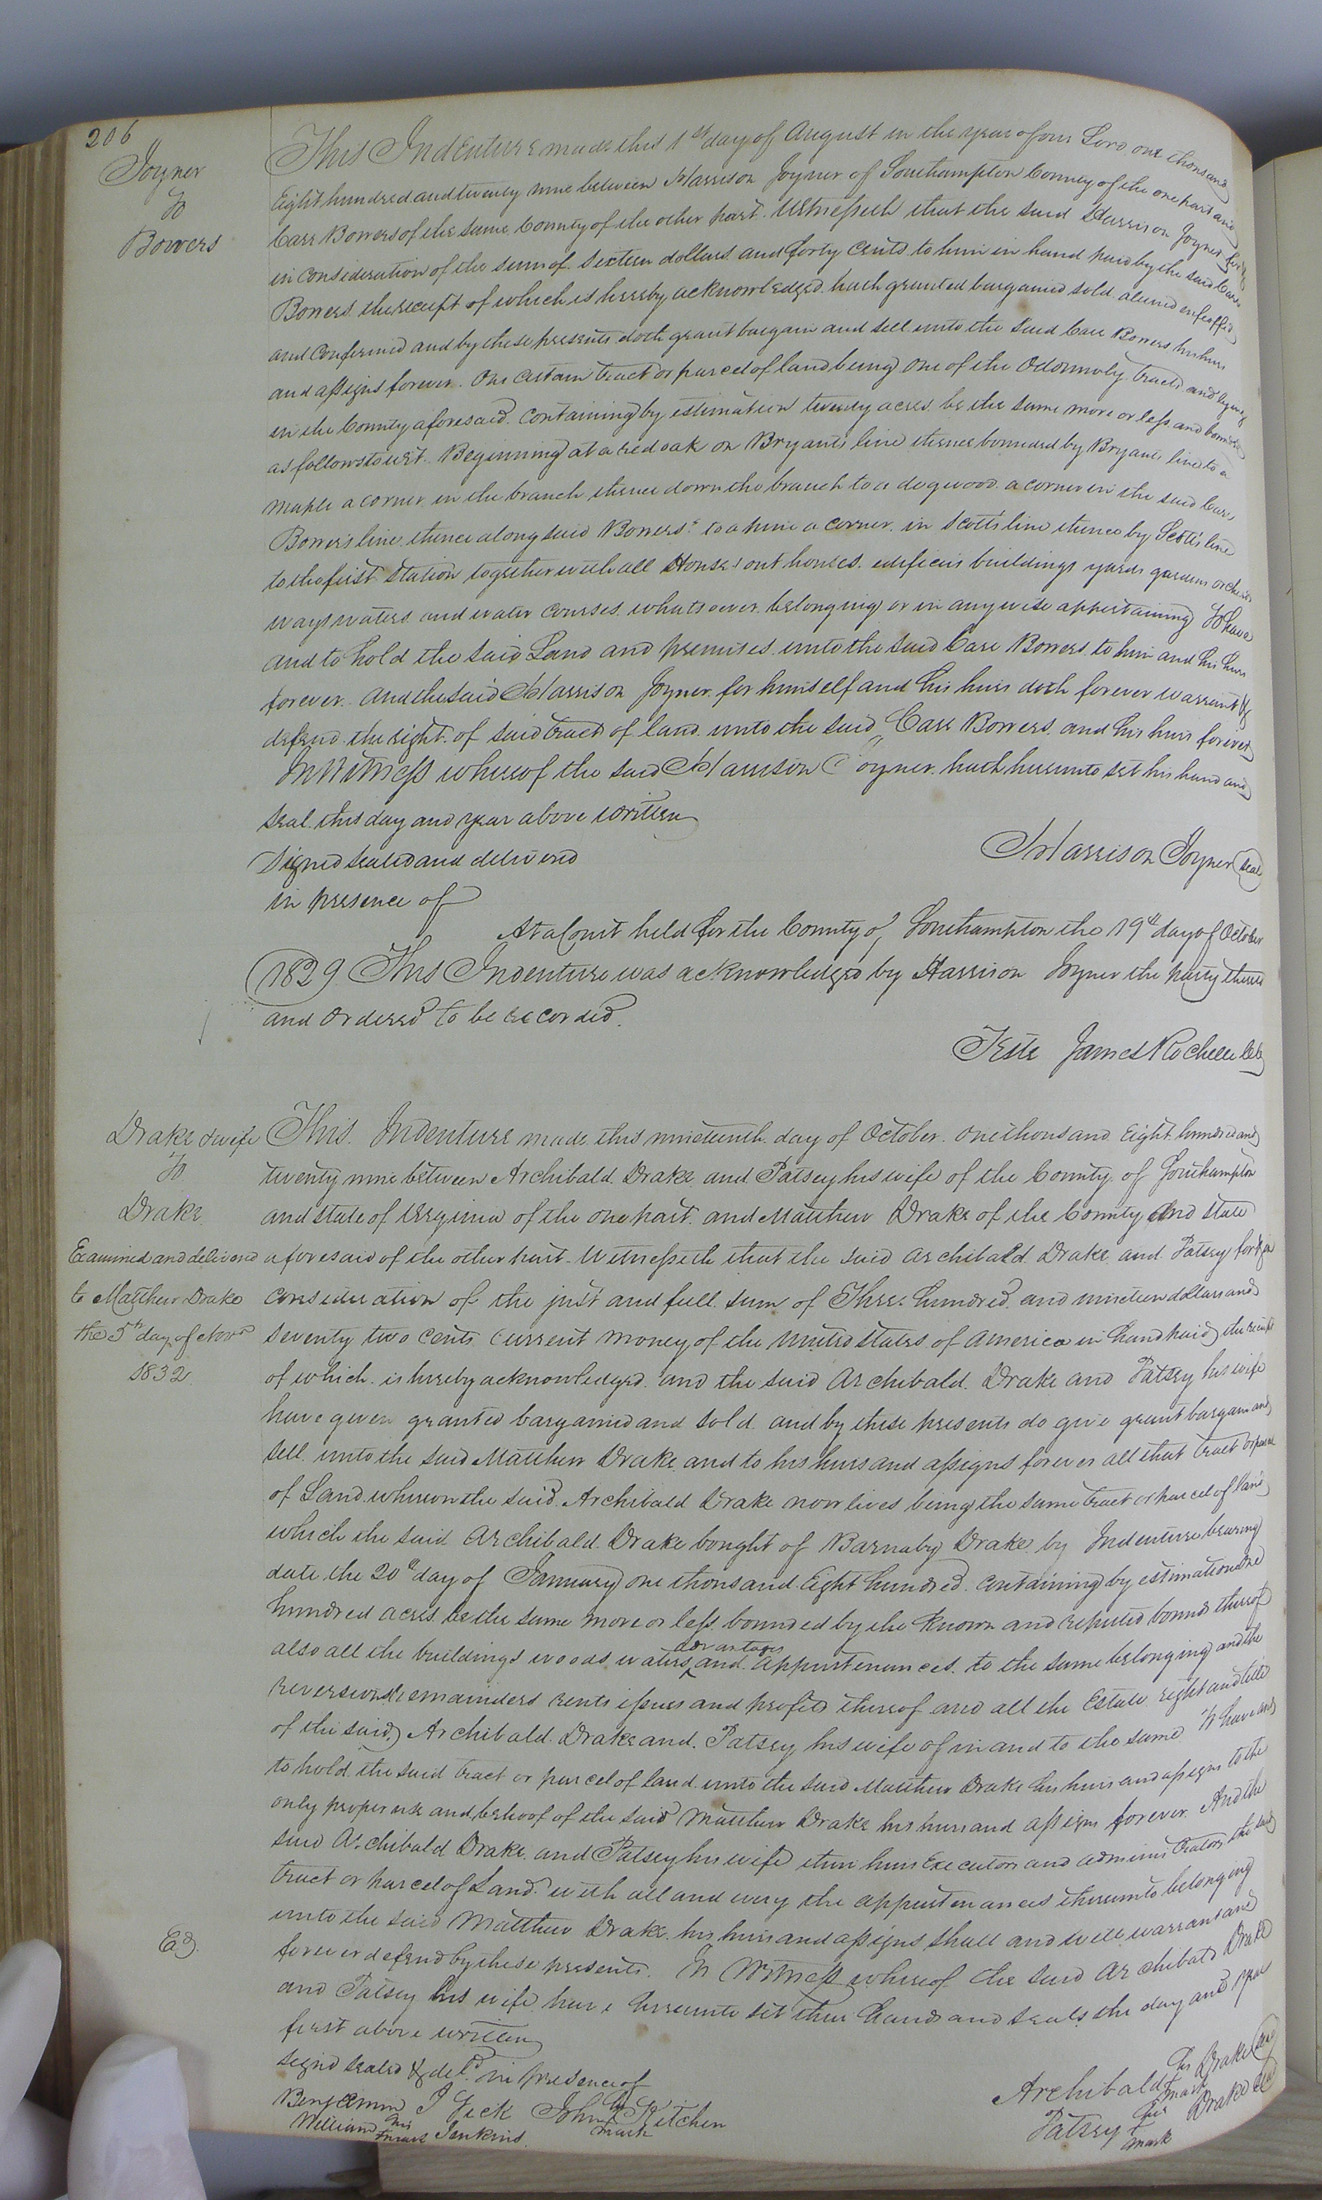 206
Joyner
To
Bowers
This Indenture made this 1st day of August in the year of our Lord one thousand
Eight hundred and twenty nine between Harrison Joyner of Southampton County of the one part and
Carr Bowers of the same County of the other part. Witnesseth that the said Harrison Joyner for &
in consideration of the sum of Sixteen dollars and forty Cents to him in hand paid by the said Carr
Bowers the receipt of which is hereby acknowledged hath granted bargained sold aliened enfeoffed
and Confirmed and by these presents doth grant bargain and sell unto the said Carr Bowers his heirs
and assigns forever. One certain tract or parcel of land being one of the tracts and lying
in the County aforesaid. Containing by estimation twenty acres be the same more or less and bounded
as follows towit. Beginning at a red oak on Bryants line thence bounded by Bryants line to a
maple a corner in the branch thence down the branch to a dogwood a corner in the said Carr
Bowers line thence along said Bowers to a pine a corner in Scotts line thence by Scotts line
to the first Station together with all Houses out houses. edifices buildings yards gardens orchards
ways waters and water courses whatsoever belonging or in any wise appertaining To have
and to hold the said Land and premises unto the said Carr Bowers to him and his heirs
forever. and the said Harrison Joyner for himself and his heirs doth forever warrant &
defend the right of said tract of land unto the said Carr Bowers and his heirs forever
In Witness whereof the said Harrison Joyner hath hereunto set his hand and
seal this day and year above written
Signed sealed and delivered
in presence of
Harrison Joyner seal
At a Court held for the County of Southampton the 19th day of October
1829 This Indenture was acknowledged by Harrison Joyner the party thereto
and Ordered to be recorded.
Teste James Rochelle Clk
Drake & wife
To
Drake
Examined and delivered
to Matthew Drake
the 5th day of Novr
1832
This Indenture made this nineteenth day of October one thousand Eight hundred and
twenty nine between Archibald Drake and Patsey his wife of the County of Southampton
and state of Virginia of the one part and Matthew Drake of the County And State
aforesaid of the other part. Witnesseth that the said Archibald Drake and Patsey for & in
consideration of the just and full sum of Three hundred and nineteen dollars and
seventy two cents current money of the United States of America in hand paid the receipt
of which is hereby acknowledged and the said Archibald Drake and Patsey his wife
have given granted bargained and sold and by these presents do give grant bargain and
sell unto the said Matthew Drake and to his heirs and assigns forever all that tract or parcel
of Land whereon the said Archibald Drake now lives being the same tract or parcel of land
which the said Archibald Drake bought of Barnaby Drake by Indenture bearing
date the 20th day of January one thousand Eight hundred. Containing by estimation One
hundred acres be the same more or less bounded by the known and reputed bounds thereof
also all the buildings woods waters advantages and appurtenances to the same belonging and the
reversions remainders rents issues and profits thereof and all the Estate right and title
of the said Archibald Drake and Patsey his wife of in and to the same To have and
to hold the said tract or parcel of land unto the said Matthew Drake his heirs and assigns to the
only proper use and behoof of the said Matthew Drake his heirs and assigns forever. And the
said Archibald Drake and Patsey his wife their heirs Executors and administrators the said
tract or parcel of Land with all and every the appurtenances thereunto belonging
unto the said Matthew Drake his heirs and assigns shall and will warrant and
forever defend by these presents. In Witness whereof the said Archibald Drake
and Patsey his wife have hereunto set their hands and seals the day and year
first above written
Ed.
Signd sealed & deld in presence of
Benjamin J
John his mark Kitchen
William his mark Jenkins
Archibald his mark Drake seal
Patsey her mark Drake seal